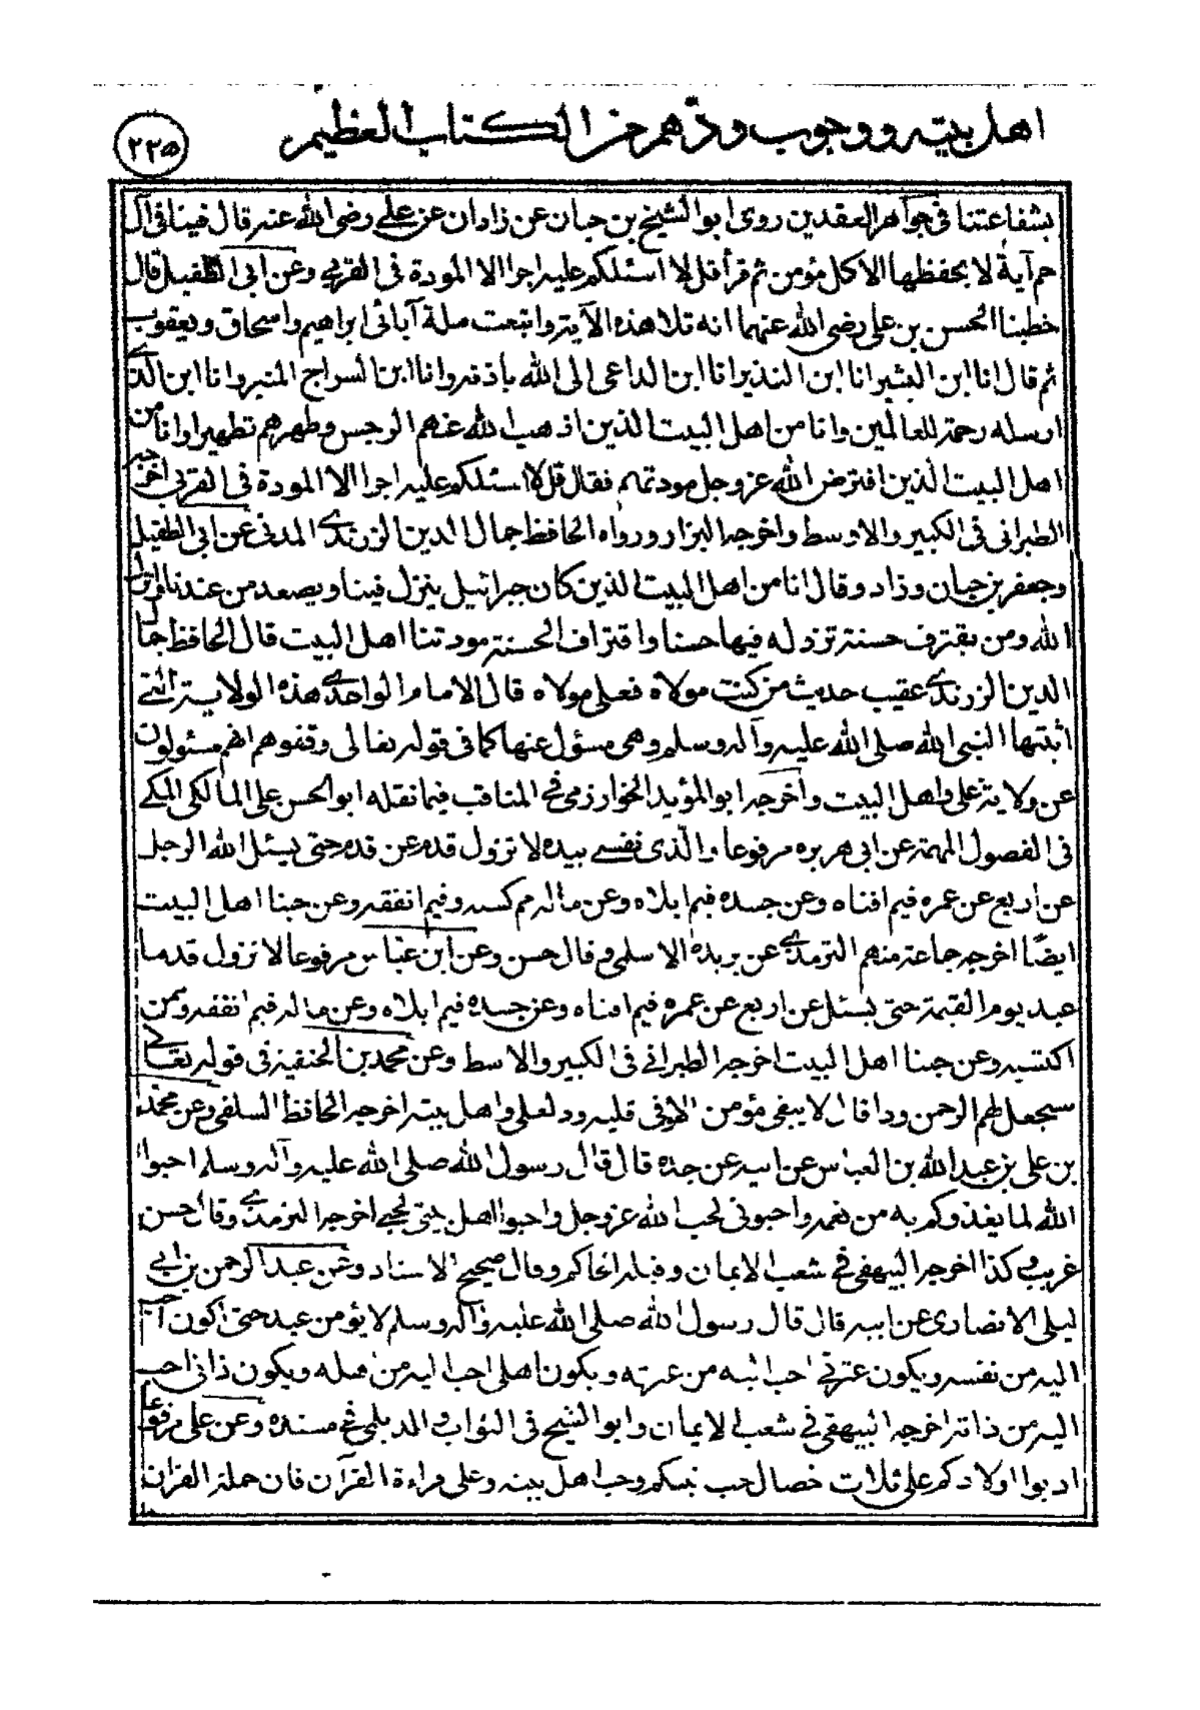 اهل بيته ووجوب ودهم من الكتاب العظيم
٢٢٥
بشفاعتنا فى جواهر العقدين روى ابو الشيخ بن حبان عن زادان عن على رضى الله عنه قال فينا فى آل
حم آية لا يحفظها الا كل مؤمن ثم قرأ قل لا اسئلكم عليه اجرا الا المودة فى القربى وعن ابى الطفيل قال
خطبنا الحسن بن على رضى الله عنهما انه تلا هذه الآية واتبعت ملة آبائى ابراهيم واسحاق ويعقوب
ثم قال انا ابن البشير انا ابن النذير انا ابن الداعى الى الله باذنه وانا ابن السراج المنير وانا ابن الذى
ارسله رحمة للعالمين وانا من اهل البيت الذين اذهب الله عنهم الرجس وطهرهم تطهيرا وانا من
اهل البيت الذين افترض الله عز وجل مودتهم فقال قل لا اسئلكم عليه اجرا الا المودة فى القربى اخرجه
الطبرانى فى الكبير والاوسط واخرجه البزار ورواه الحافظ جمال الدين الزرندى المدنى عن ابى الطفيل
وجعفر بن حبان وزاد وقال انا من اهل البيت الذين كان جبرائيل ينزل فينا ويصعد من عندنا وانزل
الله ومن يقترف حسنة نزد له فيها حسنا واقتراف الحسنة مودتنا اهل البيت قال الحافظ جمال
الدين الزرندى عقيب حديث من كنت مولاه فعلى مولاه قال الامام الواحدى هذه الولاية التى
اثبتها النبى الله صلى الله عليه وآله وسلم وهى مسؤل عنها كما فى قوله تعالى وقفوهم انهم مسئولون
عن ولاية على واهل البيت واخرجه ابو المؤيد الخوارزمى فى المناقب فيما نقله ابو الحسن على المالكى المكى
فى الفصول المهمة عن ابى هريره مرفوعا والذى نفسى بيده لا تزول قدم عن قدم حتى يسئل الله الرجل
عن اربع عن عمره فيم افناه وعن جسده فيم ابلاه وعن ماله مم كسبه وفيم انفقه وعن حبنا اهل البيت
ايضًا اخرجه جماعة منهم الترمذى عن بريده الاسلمى وقال حسن وعن ابن عباس مرفوعا لا تزول قدما
عبد يوم القيمة حتى يسئل عن اربع عن عمره فيم افناه وعن جسده فيم ابلاه وعن ماله فيم انفقه وممن
اكتسبه وعن حبنا اهل البيت اخرجه الطبرانى فى الكبير والاسط وعن محمد بن الحنفية فى قوله تعالى
سيجعل لهم الرحمن ودا قال لا يبقى مؤمن الا وفى قلبه ود لعلى واهل بيته اخرجه الحافظ السلفى وعن محمد
بن على بن عبد الله بن العباس عن ابيه عن جده قال قال رسول الله صلى الله عليه وآله وسلم احبوا
الله لما يغذوكم به من نعمه واحبونى لحب الله عز وجل واحبوا اهل بيتى لحبى اخرجه الترمذى وقال حسن
غريب وكذا اخرجه البيهقى فى شعب الايمان وقبله الحاكم وقال صحيح الاسناد وعن عبد الرحمن بن ابى
ليلى الانصارى عن ابيه قال قال رسول الله صلى الله عليه وآله وسلم لا يؤمن عبد حتى اكون احب
اليه من نفسه ويكون عترتى احب اليه من عترته ويكون اهلى احب اليه من اهله ويكون ذاتى احب
اليه من ذاته اخرجه البيهقى فى شعب الايمان وابو الشيخ فى الثواب والديلمى فى مسنده وعن على مرفوعا
ادبوا اولادكم على ثلاث خصال حب نبيكم وحب اهل بيته وعلى قراءة القرآن فان حملة القرآن